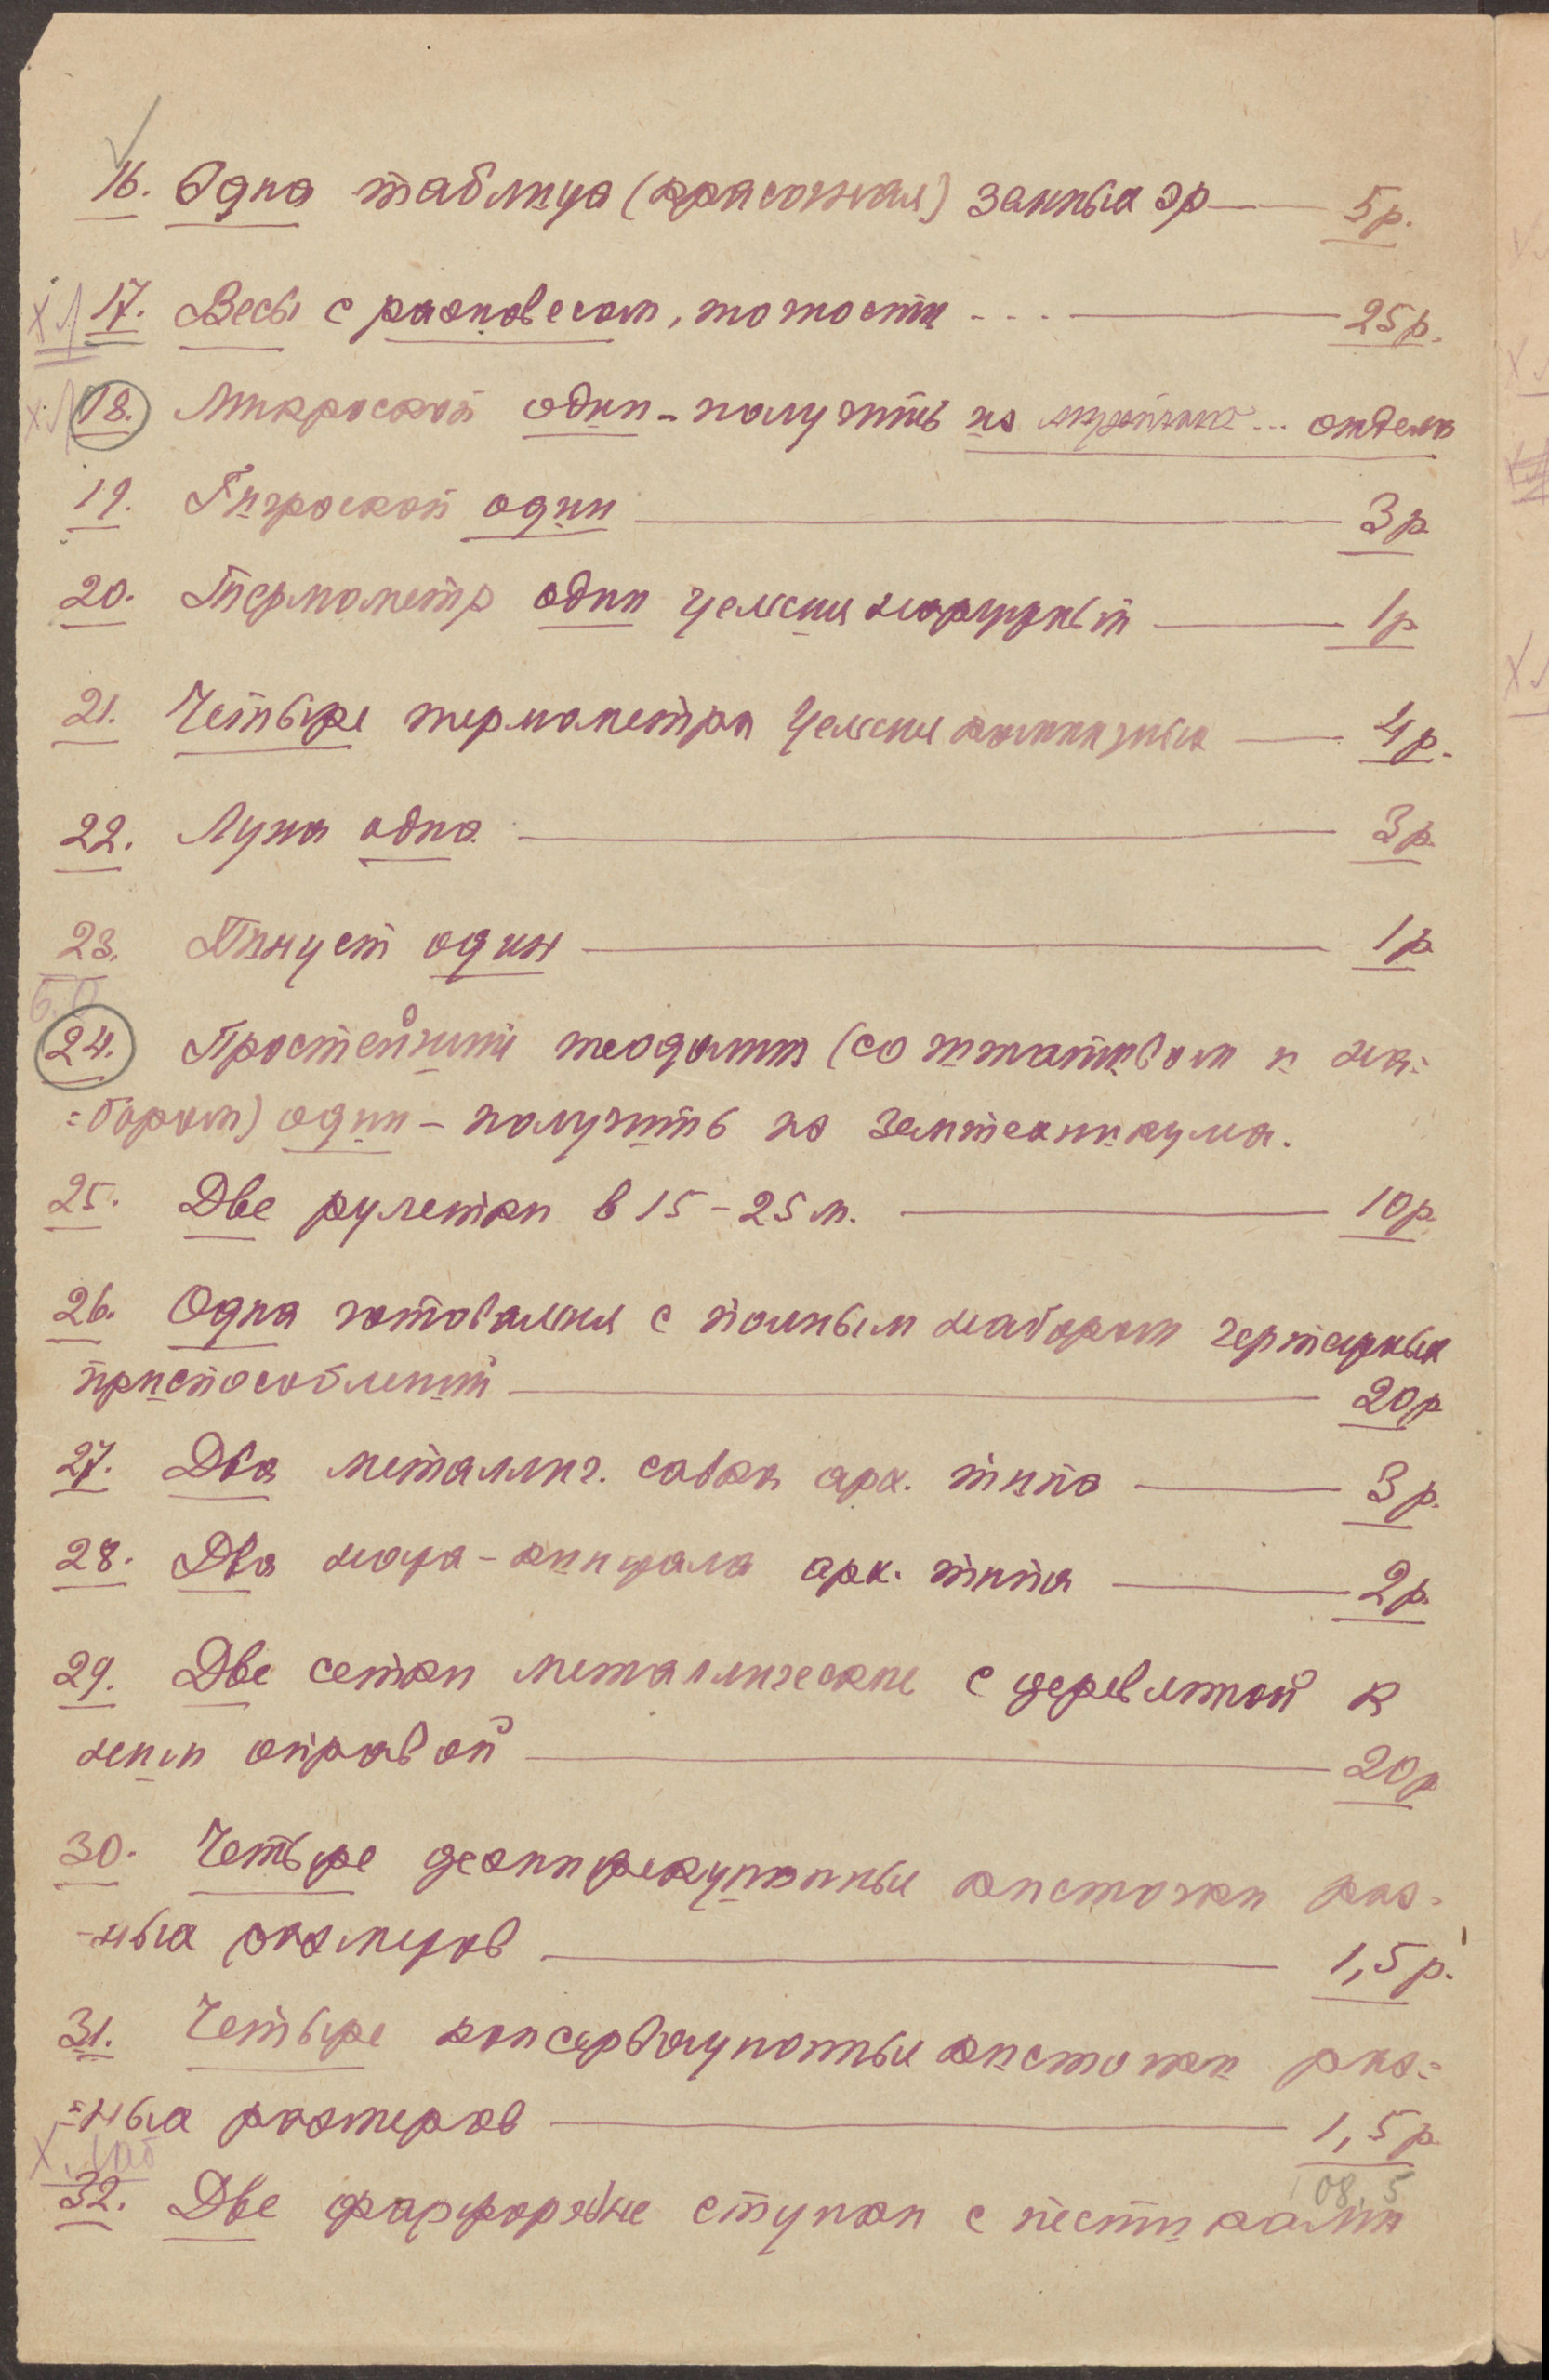 16. Одна таблица (красочная) земных эр — 5 р.
17. Весы с разновесом, точности ... — 25 р.
18. Микроскоп один - получить из ... отдела
19. Гигроскоп один — 3 р.
20. Термометр один Цельсия наружный — 1 р.
21. Четыре термометра Цельсия комнатных — 4 р.
22. Лупа одна — 3 р.
23. Пинцет один — 1 р.
24. Простейший теодолит (со штативом и на=
=бором) один - получить из Земтехникума.
25. Две рулетки в 15-25 м. — 10 р.
26. Одна готовальня с полным набором чертежных
приспособлений — 20 р.
27. Два металлич. совка арх. типа — 3 р.
28. Два ножа-кинжала арх. типа — 2 р.
29. Две сетки металлические с деревянной к
ним оправой — 20 р.
30. Четыре дезинфекционные кисточки раз-
-ных размеров — 1,5 р.
31. Четыре консервационные кисточки раз=
=ных размеров — 1,5 р.
Х. Лаб
108,5
32. Две фарфоровые ступки с пестиками